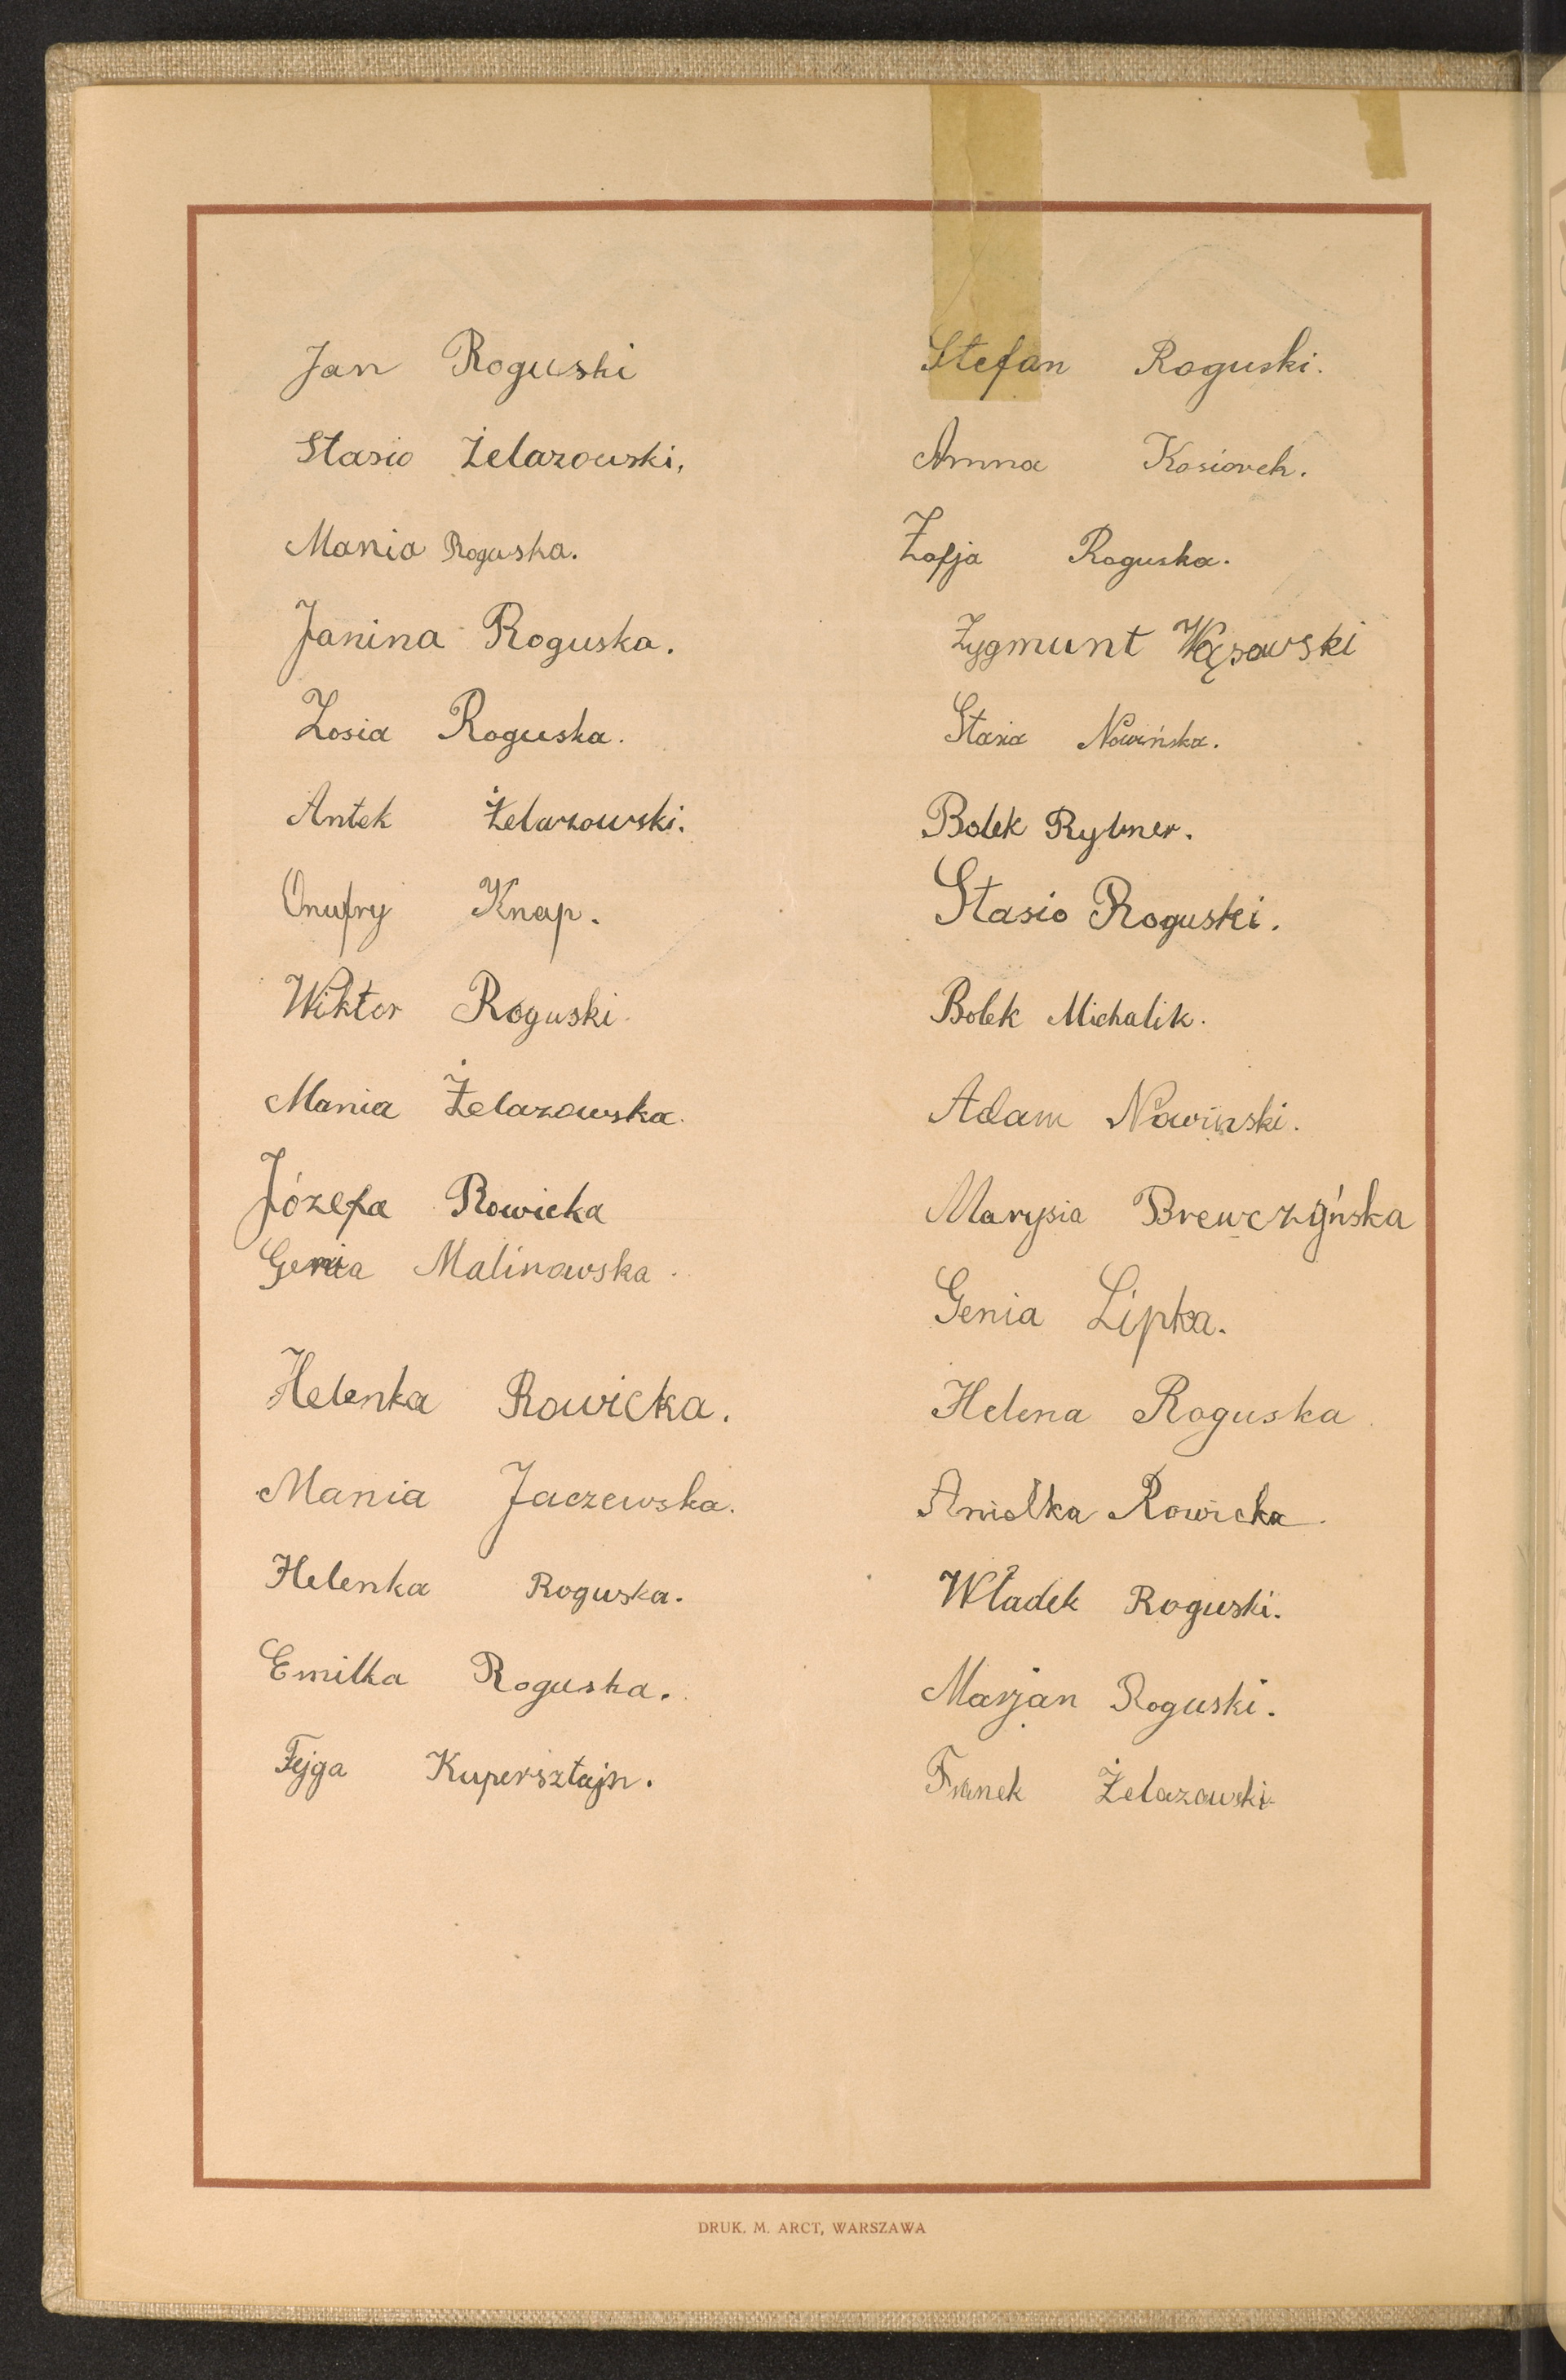 Jan Roguski
Stasio Żelazowski,
Mania Roguska.
Janina Roguska.
Zosia Roguska.
Antek Żelazowski.
Onufry Knap.
Wiktor Roguski.
Mania Żelazowska.
Józefa Rowicka
Genia Malinowska.
Helenka Rowicka.
Mania Jaczewska.
Helenka Roguska.
Emilka Roguska.
Fejga Kupersztajn.
Stefan Roguski.
Anna Kosiorek.
Zofja Roguska.
Zygmunt Wąsowski
Stasia Nowińska.
Bolek
Stasio Roguski.
Bolek Michalik.
Adam Nowinski.
Marysia Brewczyńska
Genia Lipka.
Helena Roguska.
Anielka Rowicka.
Władek Roguski.
Marjan Roguski.
Franek Żelazowski
DRUK. M. ARCT, WARSZAWA